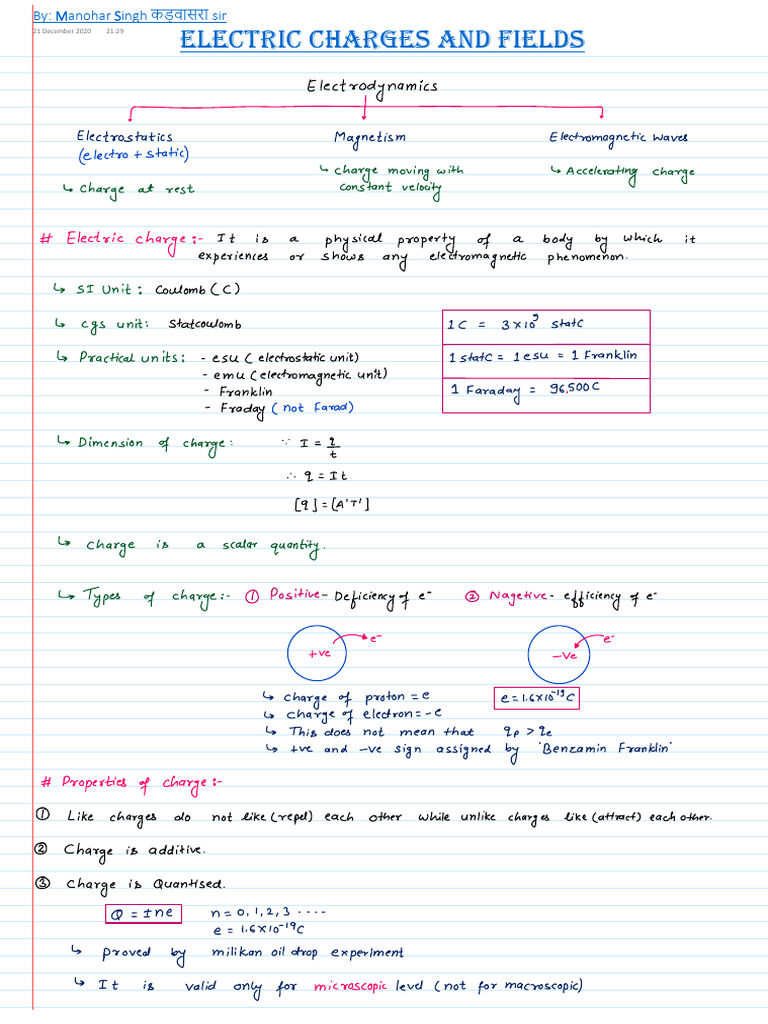 By: Manohar Singh कड़वासरा sir
21 December 2020 21:29
ELECTRIC CHARGES AND FIELDS
Electrodynamics
Electrostatics Magnetism Electromagnetic Waves
(electro + static)
↳ charge moving with ↳ Accelerating charge
↳ Charge at rest constant velocity
# Electric charge:- It is a physical property of a body by which it
experiences or shows any electromagnetic phenomenon.
↳ SI Unit: Coulomb (C)
↳ cgs unit: Statcoulomb
1C = 3×10⁹ statC
↳ Practical units: - esu (electrostatic unit)
1 statC = 1 esu = 1 Franklin
- emu (electromagnetic unit)
- Franklin
1 Faraday = 96,500C
- Fraday (not Farad)
↳ Dimension of charge: ∵ I = q/t
∴ q = It
[q] = [A¹T¹]
↳ Charge is a scalar quantity.
↳ Types of charge:- ① Positive - Deficiency of e⁻ ② Nagetive - efficiency of e⁻
e⁻ e⁻
+ve -ve
↳ charge of proton = e e = 1.6×10⁻¹⁹C
↳ charge of electron = -e
↳ This does not mean that qp > qe
↳ +ve and -ve sign assigned by 'Benzamin Franklin'
# Properties of charge:-
① Like charges do not like (repel) each other while unlike charges like (attract) each other.
② Charge is additive.
③ Charge is Quantised.
Q = ±ne n = 0, 1, 2, 3 ....
e = 1.6×10⁻¹⁹C
↳ proved by milikan oil drop experiment
↳ It is valid only for microscopic level (not for macroscopic)